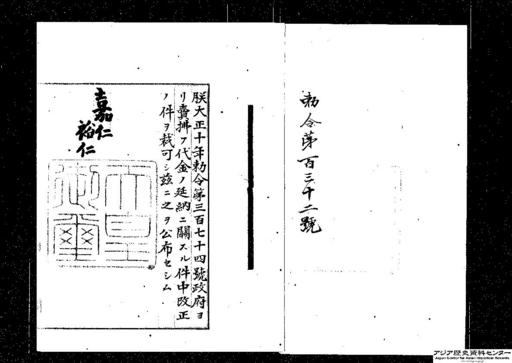 勅令第百三十二號
朕大正十年勅令第三百七十四號政府ヨ
リ賣拂フ代金ノ延納ニ關スル件中改正
ノ件ヲ裁可シ茲ニ之ヲ公布セシム
嘉仁
裕仁
天皇
御璽
アジア歴史資料センター
Japan Center for Asian Historical Records